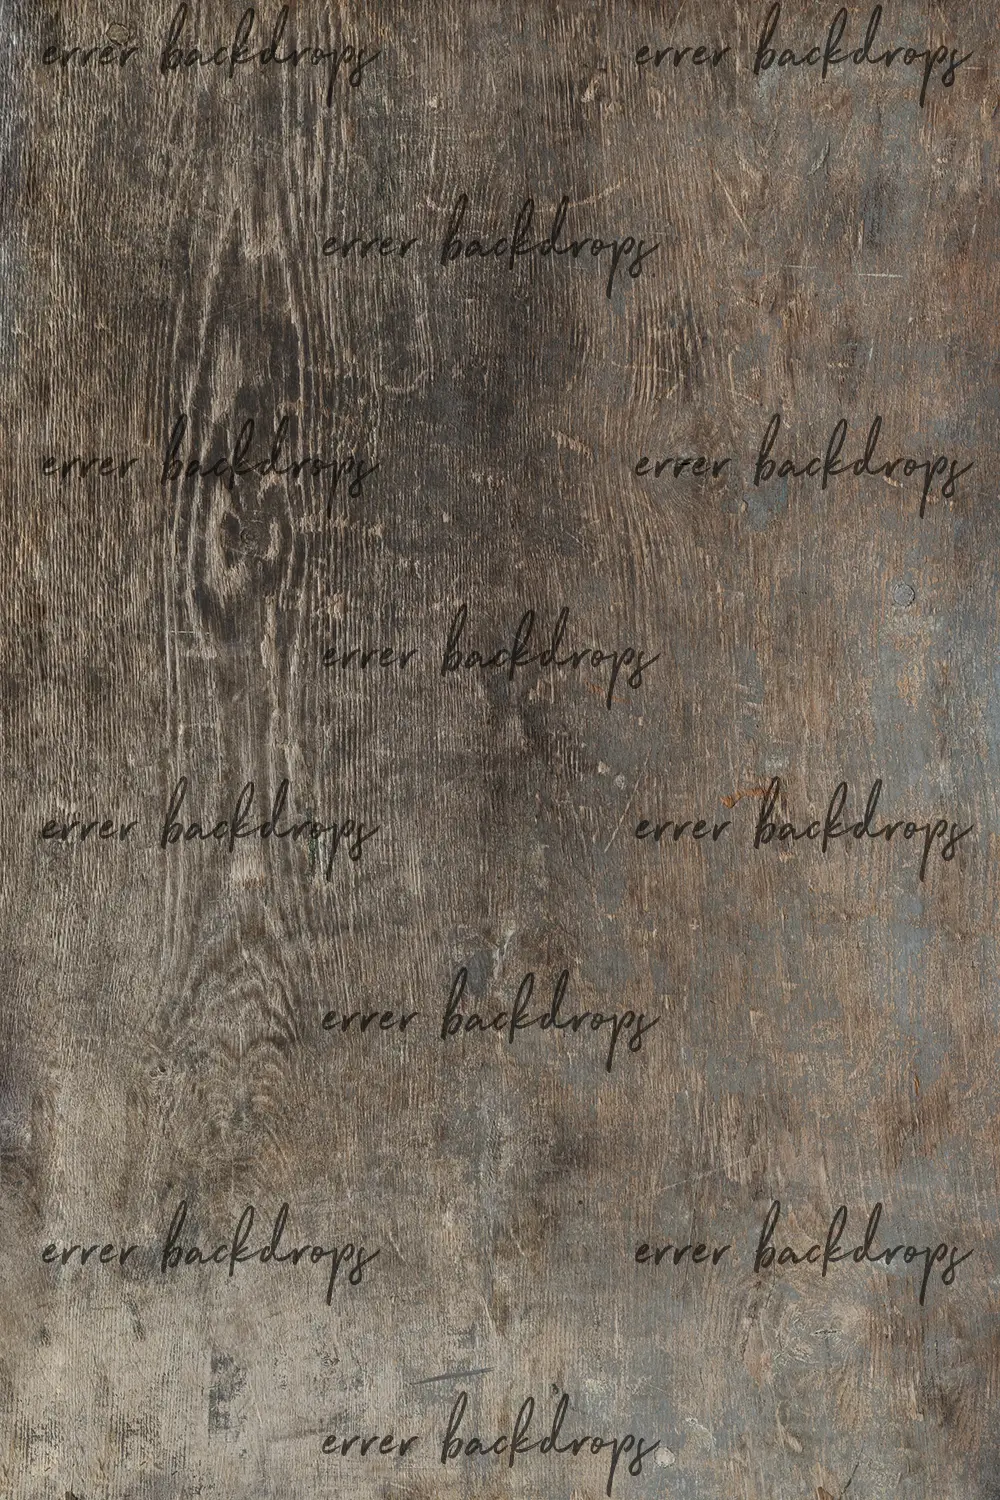 errer backdrops errer backdrops
errer backdrops
errer backdrops errer backdrops
errer backdrops
errer backdrops errer backdrops
errer backdrops
errer backdrops errer backdrops
errer backdrops